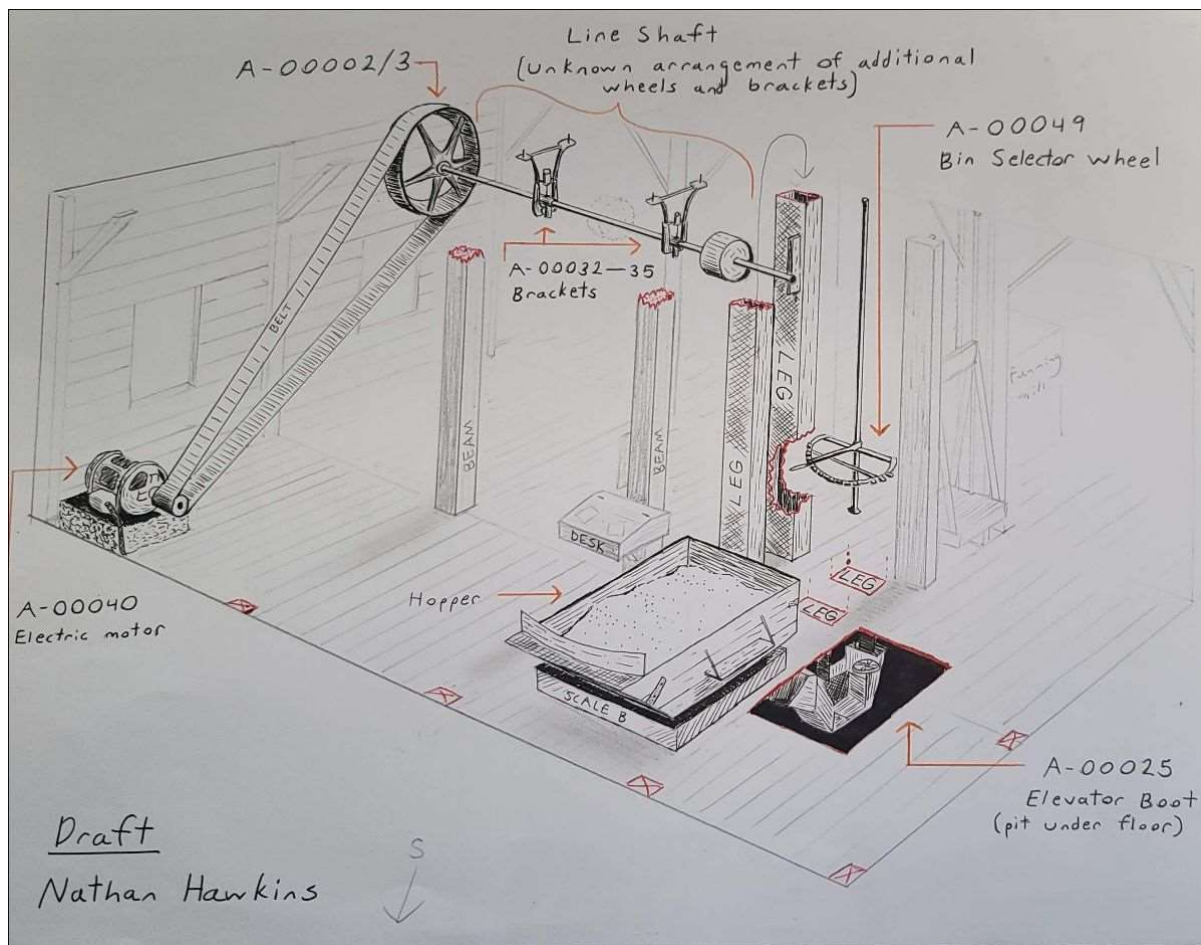 Line Shaft
(Unknown arrangement of additional
wheels and brackets)
A-00002/3
A-00049
Bin Selector wheel
A-00032-35
Brackets
BELT
BEAM
BEAM
LEG
LEG
Fanning
mill
DESK
Hopper
LEG
LEG
SCALE B
A-00040
Electric motor
A-00025
Elevator Boot
(pit under floor)
Draft
Nathan Hawkins
S